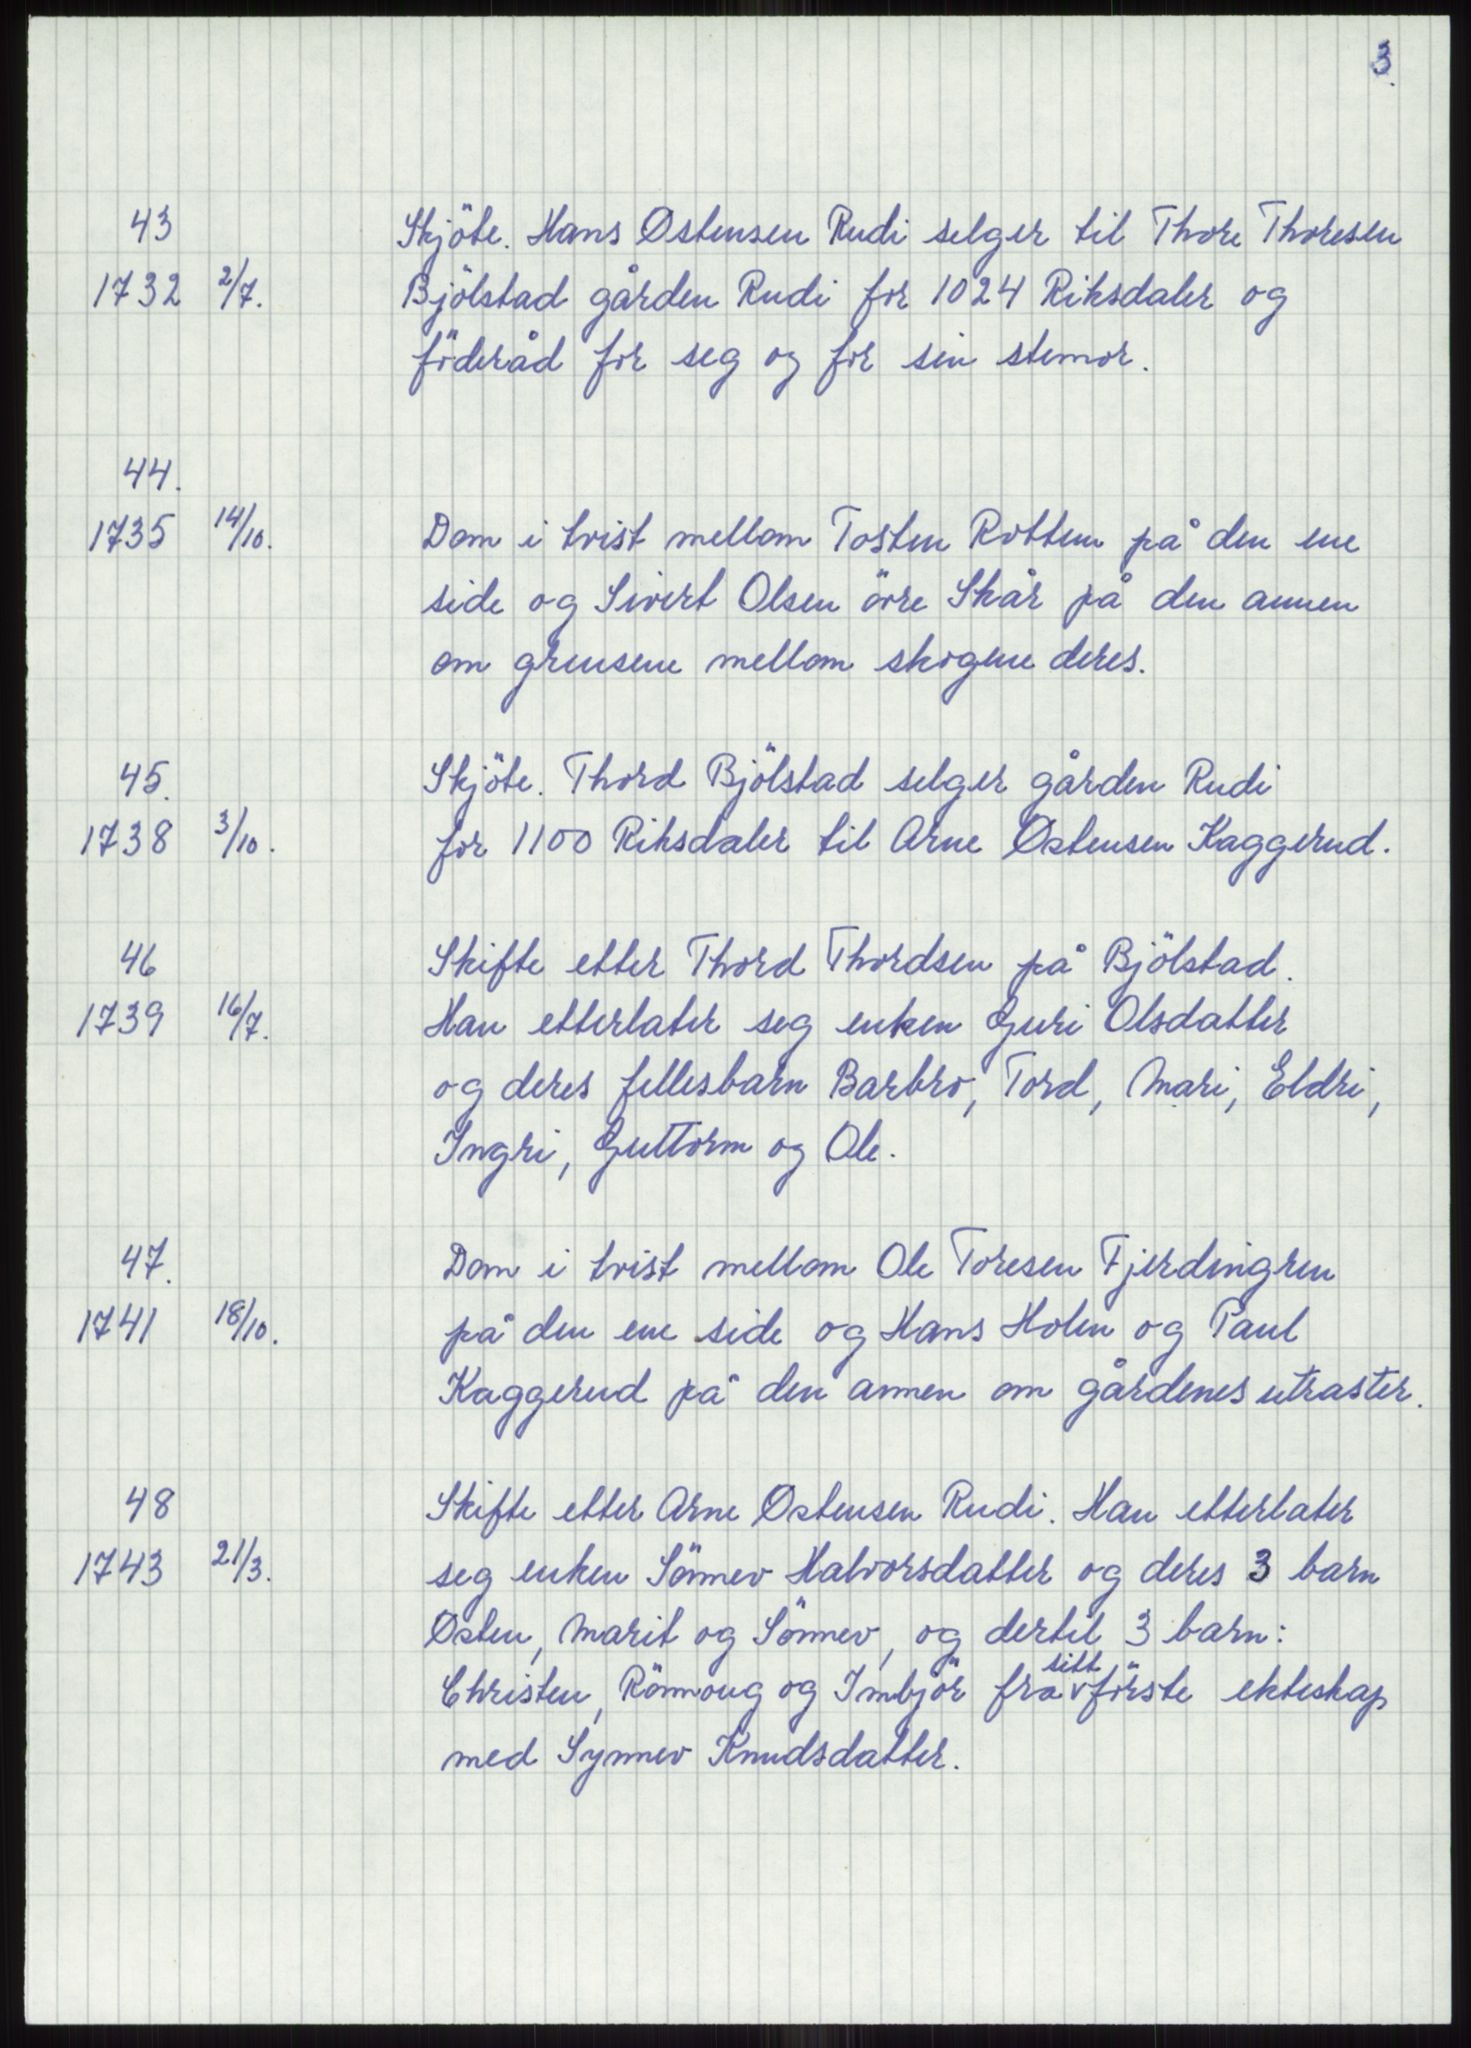 3.
43 Skjöte. Hans Østensen Rudi selger til Thore Thoresen
1732 2/7. Bjölstad gården Rudi for 1024 Riksdaler og
föderåd for seg og for sin stemor.
44.
1735 14/10. Dom i tvist mellom Tosten Rottem på den ene
side og Sivert Olsen övre Skår på den annen
om grensene mellom skogene deres.
45. Skjöte. Thord Bjölstad selger gården Rudi
1738 3/10. for 1100 Riksdaler til Arne Østensen Kaggerud.
46 Skifte etter Thord Thordsen på Bjölstad.
1739 16/7. Han etterlater seg enken Guri Olsdatter
og deres fellesbarn Barbro, Tord, Mari, Eldri,
Ingri, Guttorm og Ole.
47. Dom i tvist mellom Ole Toresen Fjerdingren
1741 18/10. på den ene side og Hans Holen og Paul
Kaggerud på den annen om gårdenes utraster.
48 Skifte etter Arne Østensen Rudi. Han etterlater
1743 21/3. seg enken Sönnev Halvorsdatter og deres 3 barn
Østen, Marit og Sönnev, og dertil 3 barn:
Christen, Rönnoug og Imbjör fra sitt förste ekteskap
med Synnev Knudsdatter.